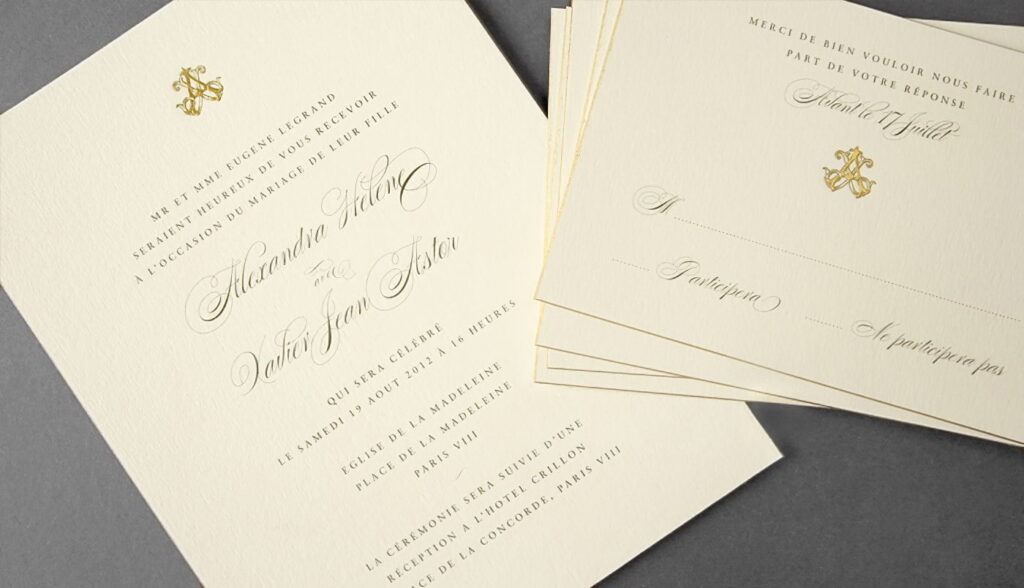 MR ET MME EUGENE LEGRAND
SERAIENT HEUREUX DE VOUS RECEVOIR
À L'OCCASION DU MARIAGE DE LEUR FILLE
Alexandra Hélène
avec
Xavier Jean Astor
QUI SERA CÉLÉBRÉ
LE SAMEDI 19 AOUT 2012 À 16 HEURES
EGLISE DE LA MADELEINE
PLACE DE LA MADELEINE
PARIS VIII
LA CÉRÉMONIE SERA SUIVIE D'UNE
RÉCEPTION A L'HOTEL CRILLON
PLACE DE LA CONCORDE, PARIS VIII
MERCI DE BIEN VOULOIR NOUS FAIRE
PART DE VOTRE RÉPONSE
Avant le 17 Juillet
M
Participera
Ne participera pas